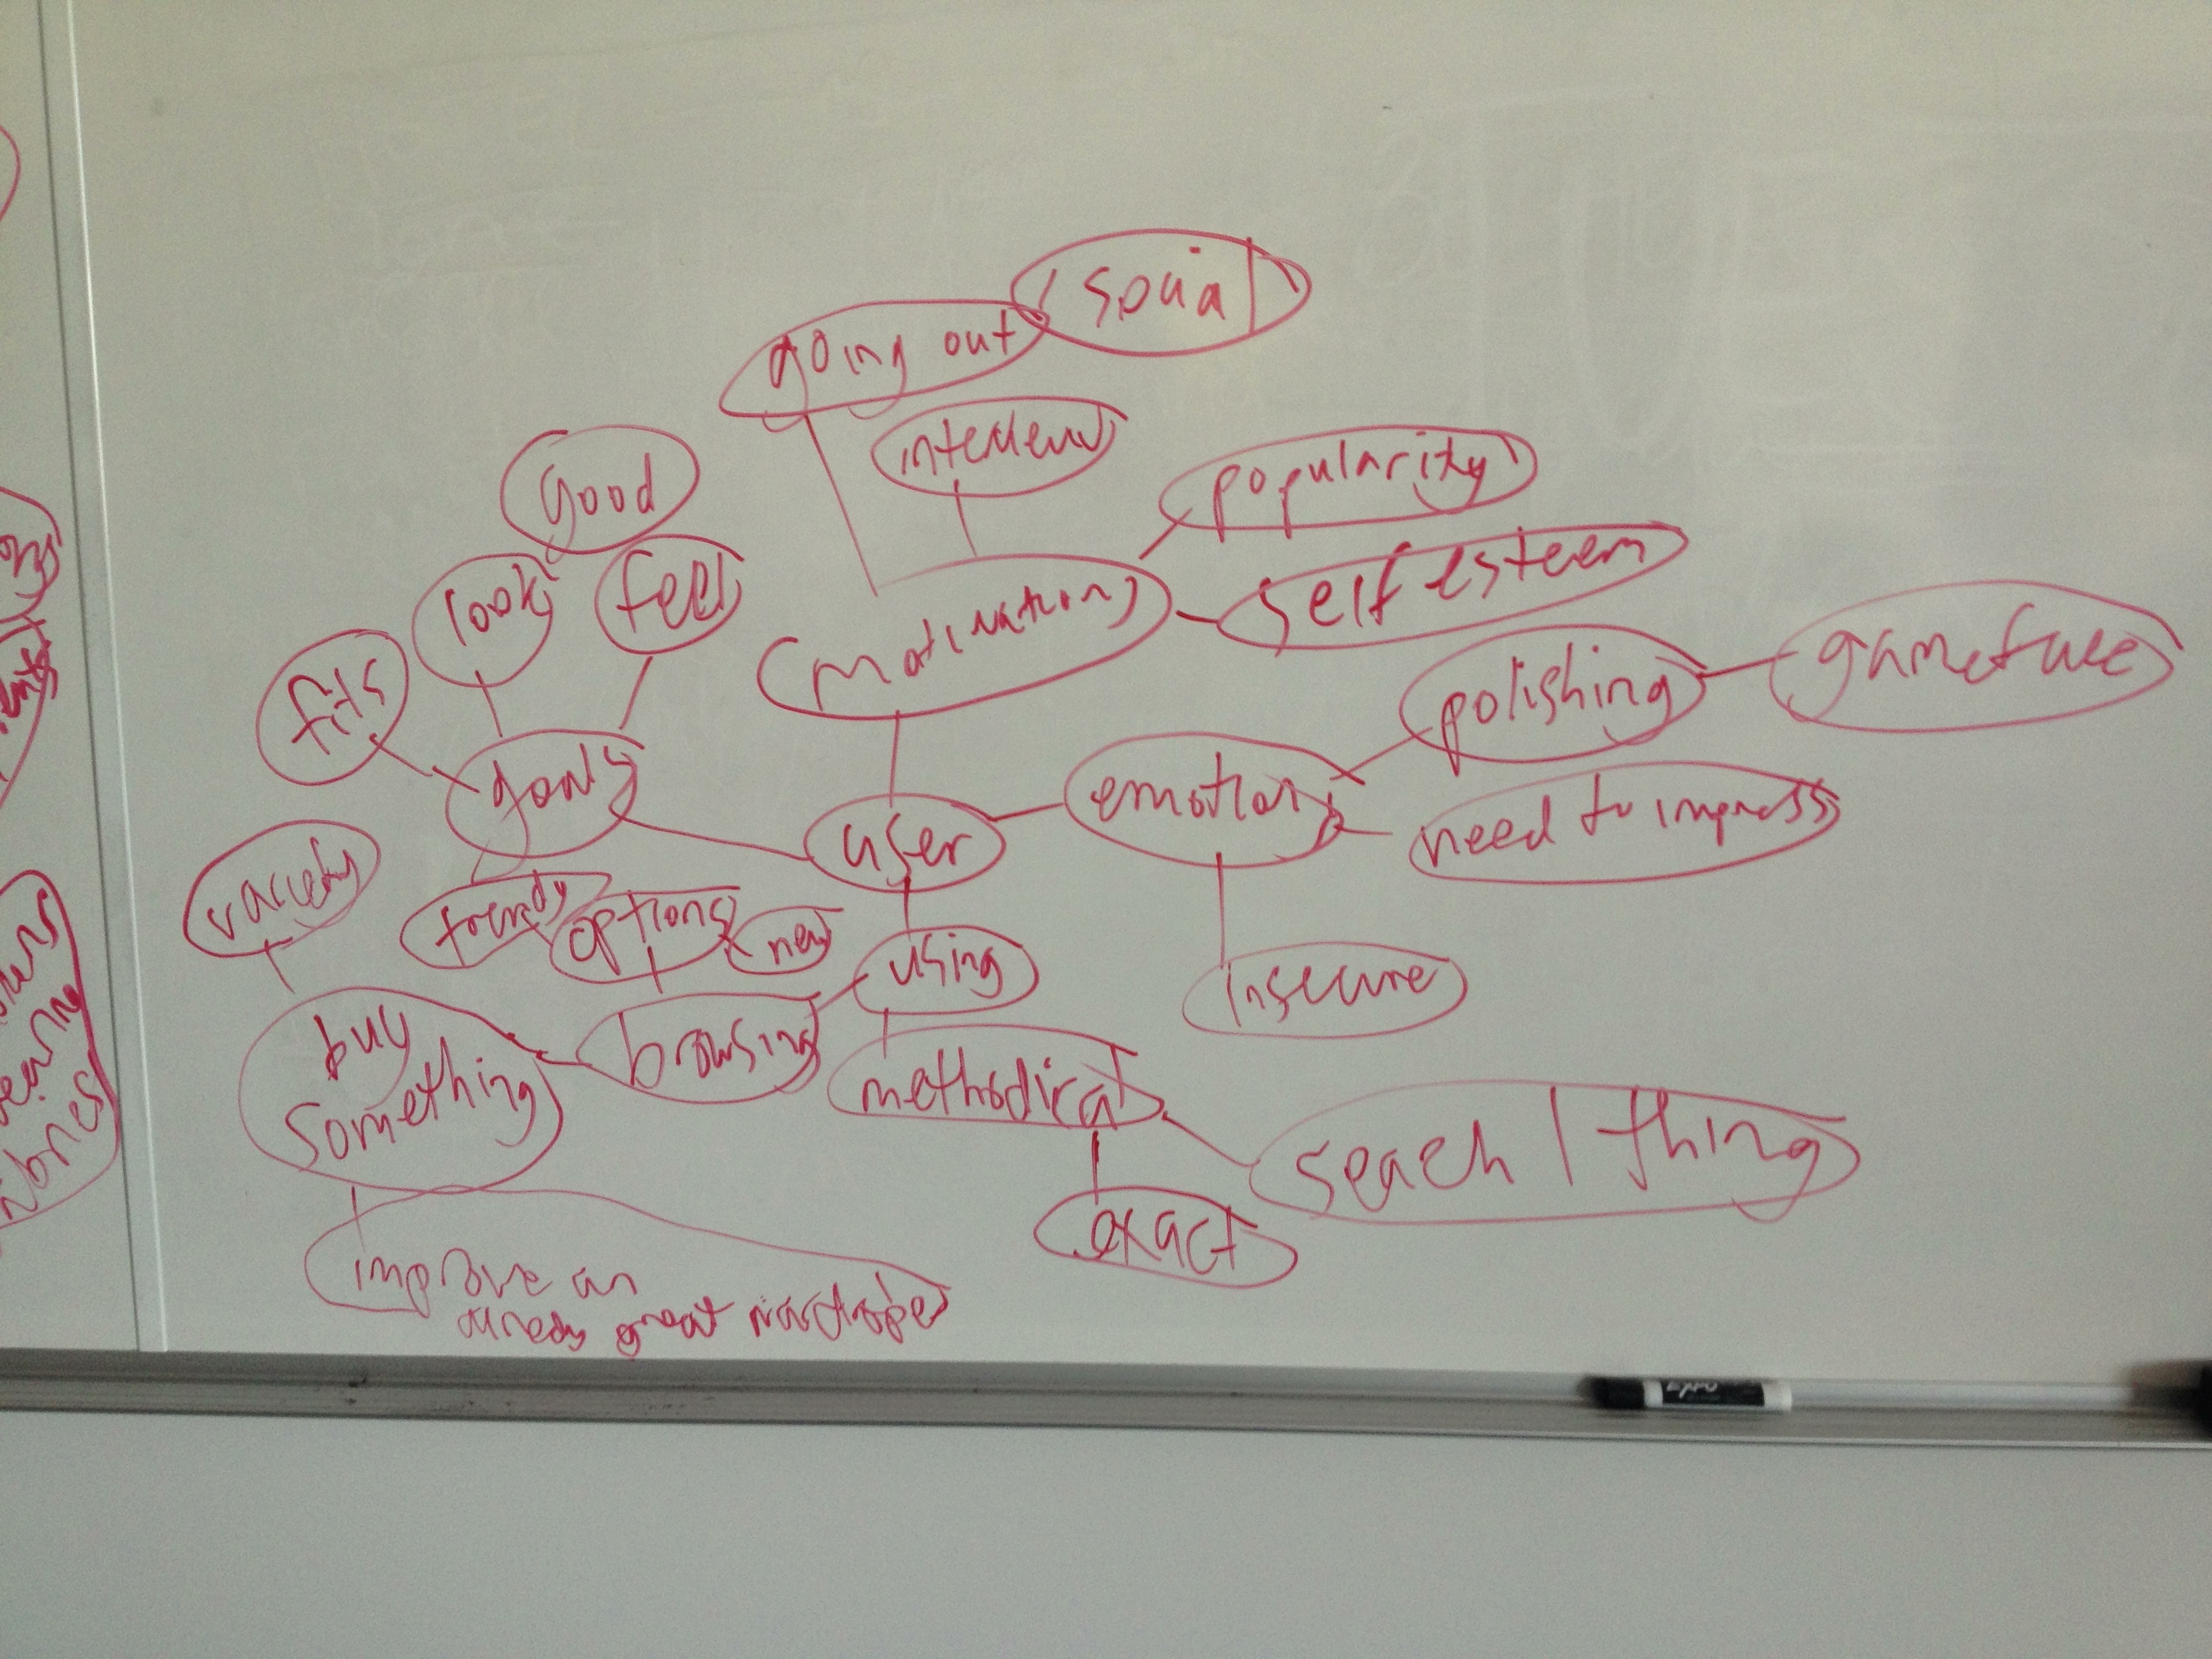 social
going out
interview
good
popularity
look
feel
self esteem
motivation
fits
polishing
gameface
goals
emotion
need to impress
user
variety
trendy
options
new
using
insecure
buy
something
browsing
methodical
seach 1 thing
exact
improve an
already great wardrobe
EXPO